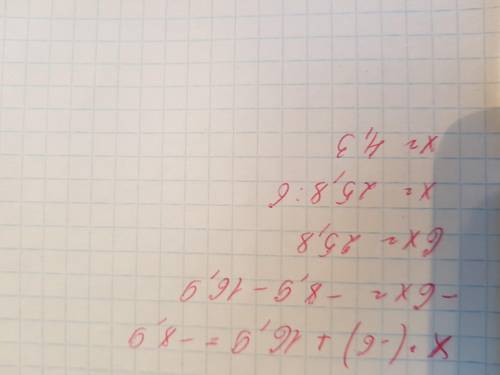 x·(-6) + 16,9 = -8,9
-6x = -8,9-16,9
6x = 25,8
x = 25,8:6
x = 4,3